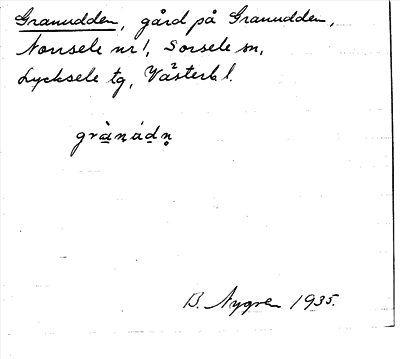 Granudden, gård på Granudden,
Norrsele nr 1, Sorsele sn,
Lycksele tg, Västerb. l.
B. Nygren 1935.